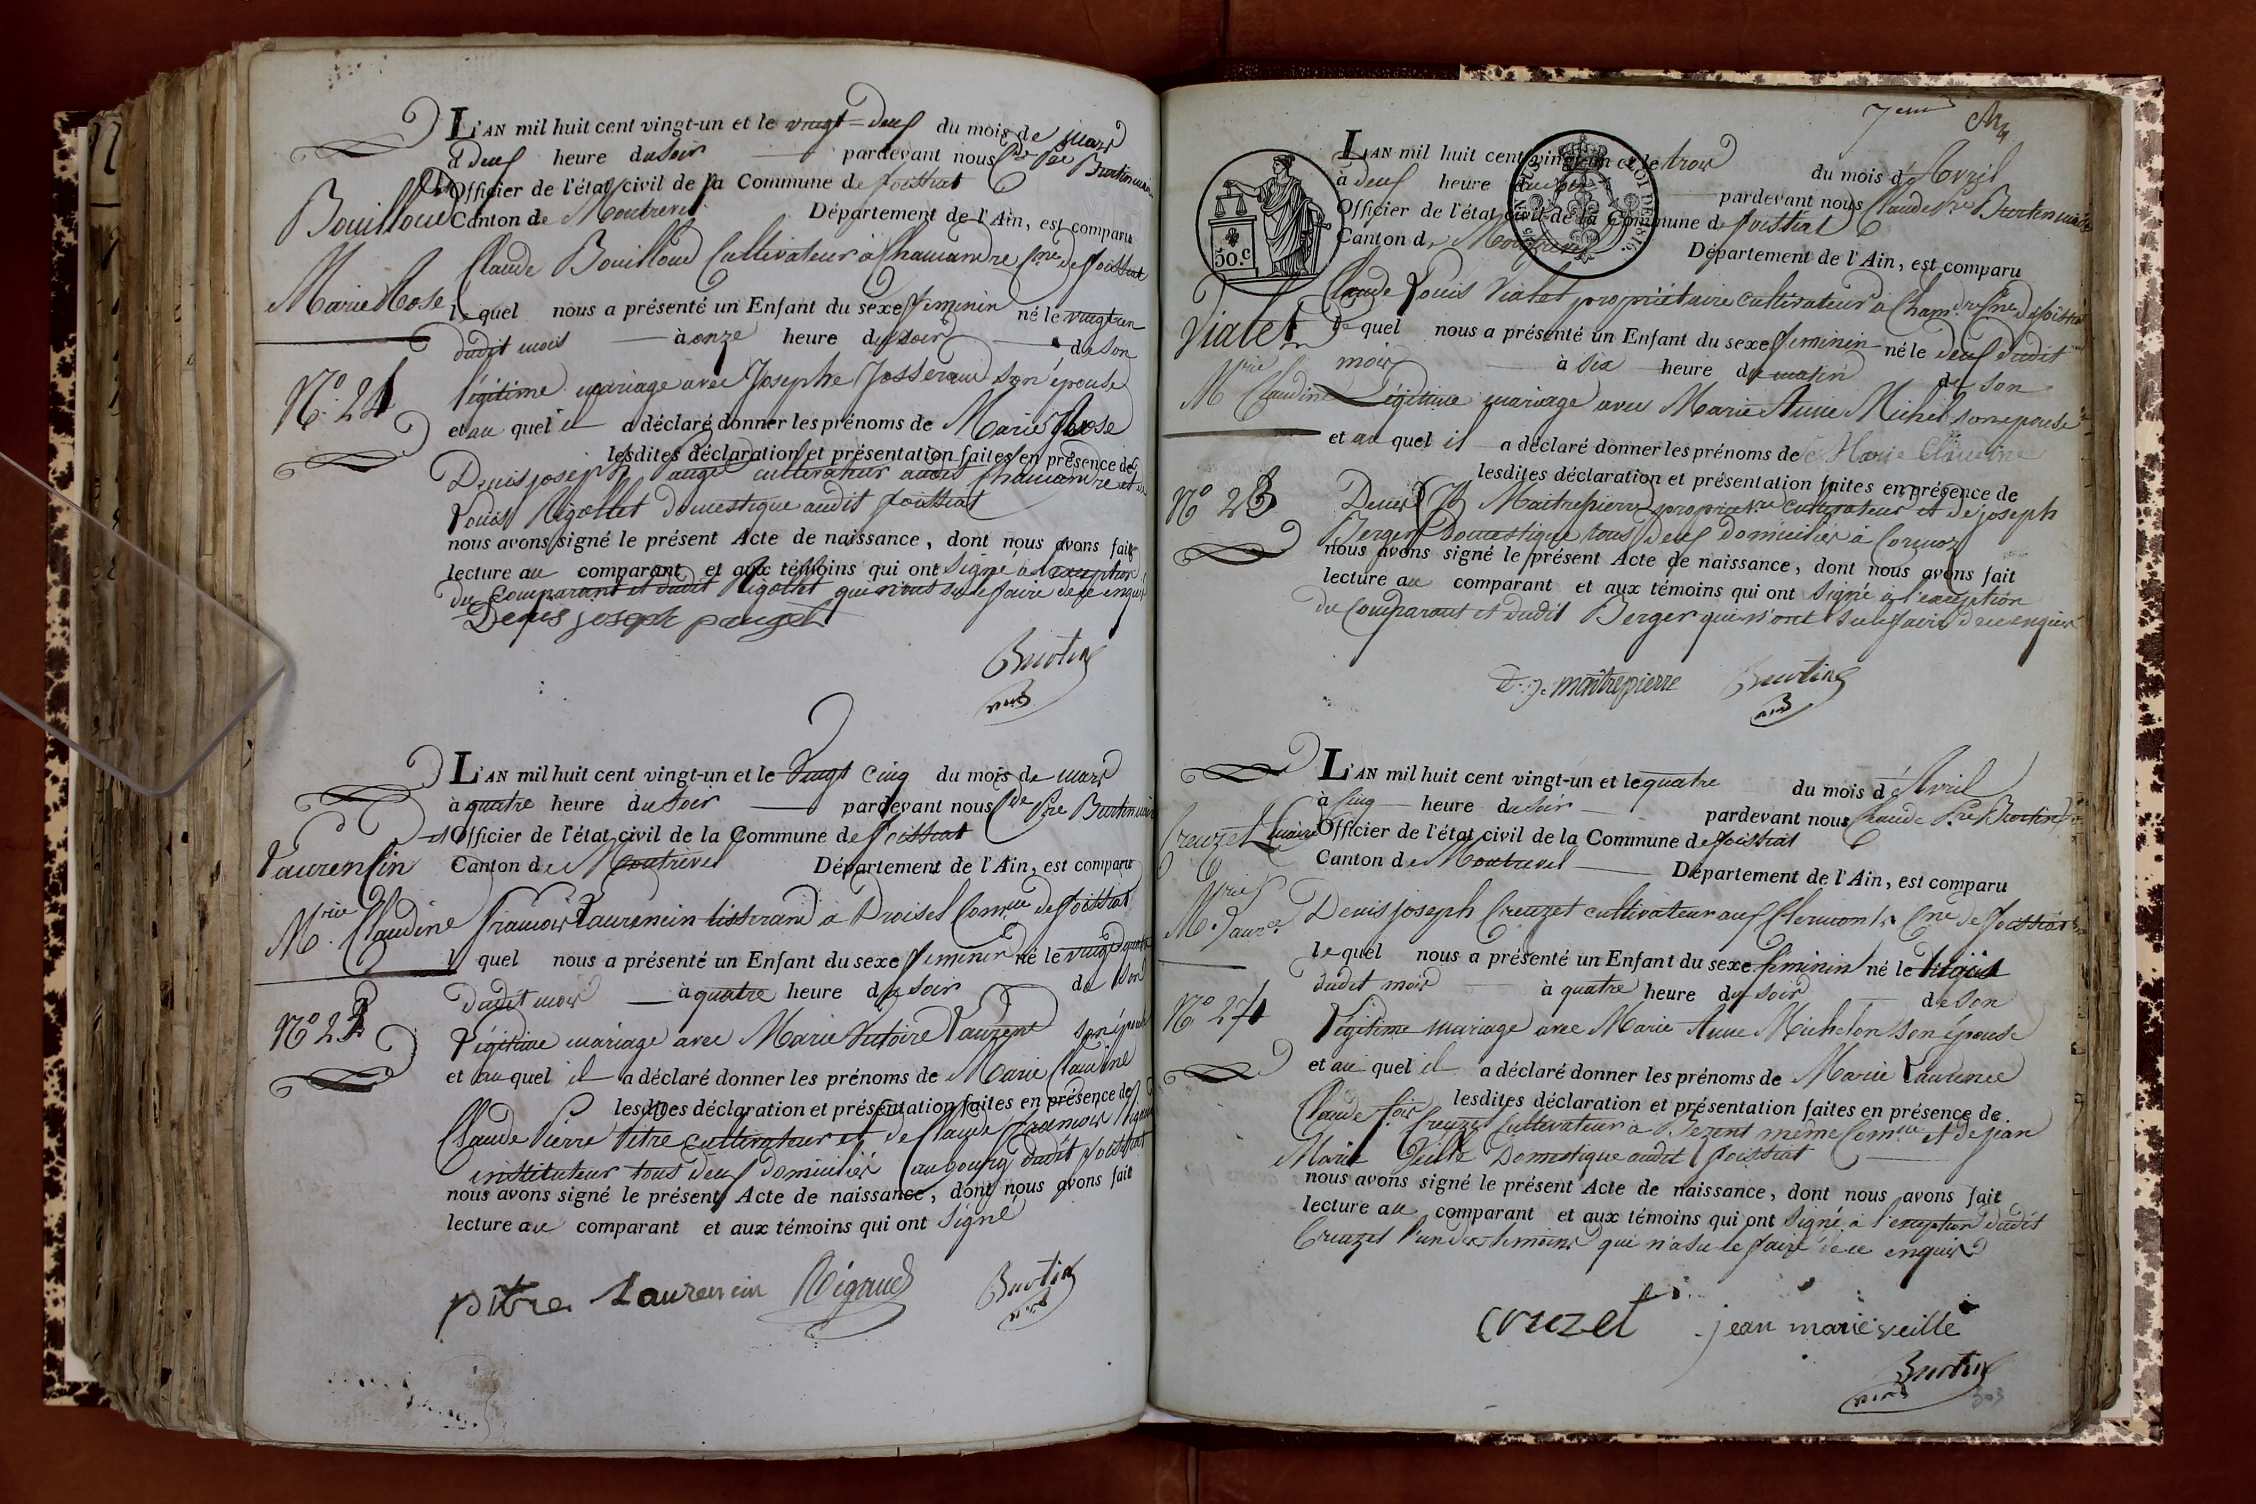 L'AN mil huit cent vingt-un et le vingt=deux du mois de mars
à deux heure du soir pardevant nous Cde Pre Burtin maire
Officier de l'état civil de la Commune de foissiat
Canton de Montrevel Département de l'Ain, est comparu
Claude Bouilloud Cultivateur à Chamandre Cne de foissiat
le quel nous a présenté un Enfant du sexe feminin né le vingt un
dudit mois à onze heure du soir de son
légitime mariage avec Josephe Josserand son épouse
et au quel il a déclaré donner les prénoms de Marie Rose
lesdites déclaration et présentation faites en présence de
Denis joseph cultivateur audit Chamandre et de
Louis Rigollet domestique audit foissiat
nous avons signé le présent Acte de naissance, dont nous avons fait
lecture au comparant et aux témoins qui ont Signé à l'exception
du Comparant et dudit Rigollet qui n'ont su le faire de ce enquis
Denis joseph pauget
Burtin
Bouilloud
Marie Rose
N° 21
L'AN mil huit cent vingt-un et le Vingt Cinq du mois de mars
à quatre heure du soir pardevant nous Cde Pre Burtin maire
et Officier de l'état civil de la Commune de foissiat
Canton de Montrevel Département de l'Ain, est comparu
francois Laurencin tisserand à Droisel Comue de foissiat
l quel nous a présenté un Enfant du sexe feminin né le vingt quatre
dudit mois à quatre heure du soir de son
Légitime mariage avec Marie Victoire Laurent son épouse
et au quel il a déclaré donner les prénoms de Marie Claudine
lesdites déclaration et présentation faites en présence de
Claude Pierre Pitre cultivateur et de Claude francois Rigaud
instituteur tous deux domiciliés au bourg dudit foissiat
nous avons signé le présent Acte de naissance, dont nous avons fait
lecture au comparant et aux témoins qui ont Signé
pitre Laurencin Rigaud Burtin
Laurencin
Mrie Claudine
N° 22
7eme
L'AN mil huit cent vingt-un et le trois du mois d'Avril
à deux heure du soir pardevant nous Claude Pre Burtin maire
Officier de l'état civil de la Commune de foissiat
Canton de Montrevel Département de l'Ain, est comparu
Claude Louis Vialet propriétaire cultivateur à Chamdre Cne de foissiat
le quel nous a présenté un Enfant du sexe feminin né le deux dudit
mois à six heure du matin de son
Légitime mariage avec Marie Anne Michel son epouse
et au quel il a déclaré donner les prénoms de Marie Claudine
lesdites déclaration et présentation faites en présence de
Denis Jh Maitrepierre propriétre cultivateur et de joseph
Berger Domestique tous deux domiciliés à Cormoz
nous avons signé le présent Acte de naissance, dont nous avons fait
lecture au comparant et aux témoins qui ont Signé à l'exception
du Comparant et dudit Berger qui n'ont su le faire de ce enquis
D. j. maîtrepierre Burtin
50.c
LOI DE 1816.
Vialet
Mrie Claudine
N° 23
L'AN mil huit cent vingt-un et le quatre du mois d'Avril
à Cinq heure du soir pardevant nous Claude Pre Burtin
maire Officier de l'état civil de la Commune de foissiat
Canton de Montrevel Département de l'Ain, est comparu
Denis joseph Creuzet cultivateur aux Clermonts Cne de foissiat
le quel nous a présenté un Enfant du sexe feminin né le
dudit mois à quatre heure du soir de son
Légitime mariage avec Marie Anne Michelon son épouse
et au quel il a déclaré donner les prénoms de Marie Laurence
lesdites déclaration et présentation faites en présence de
Claude fois Creuzet Cultivateur à Bezent même Comue et de jean
Marie Veille Domestique audit foissiat
nous avons signé le présent Acte de naissance, dont nous avons fait
lecture au comparant et aux témoins qui ont Signé à l'exception dudit
Creuzet l'un des témoins qui n'a su le faire de ce enquis
cruzet jean marie veille
Burtin
303
Creuzet
Mrie Laurce
N° 24